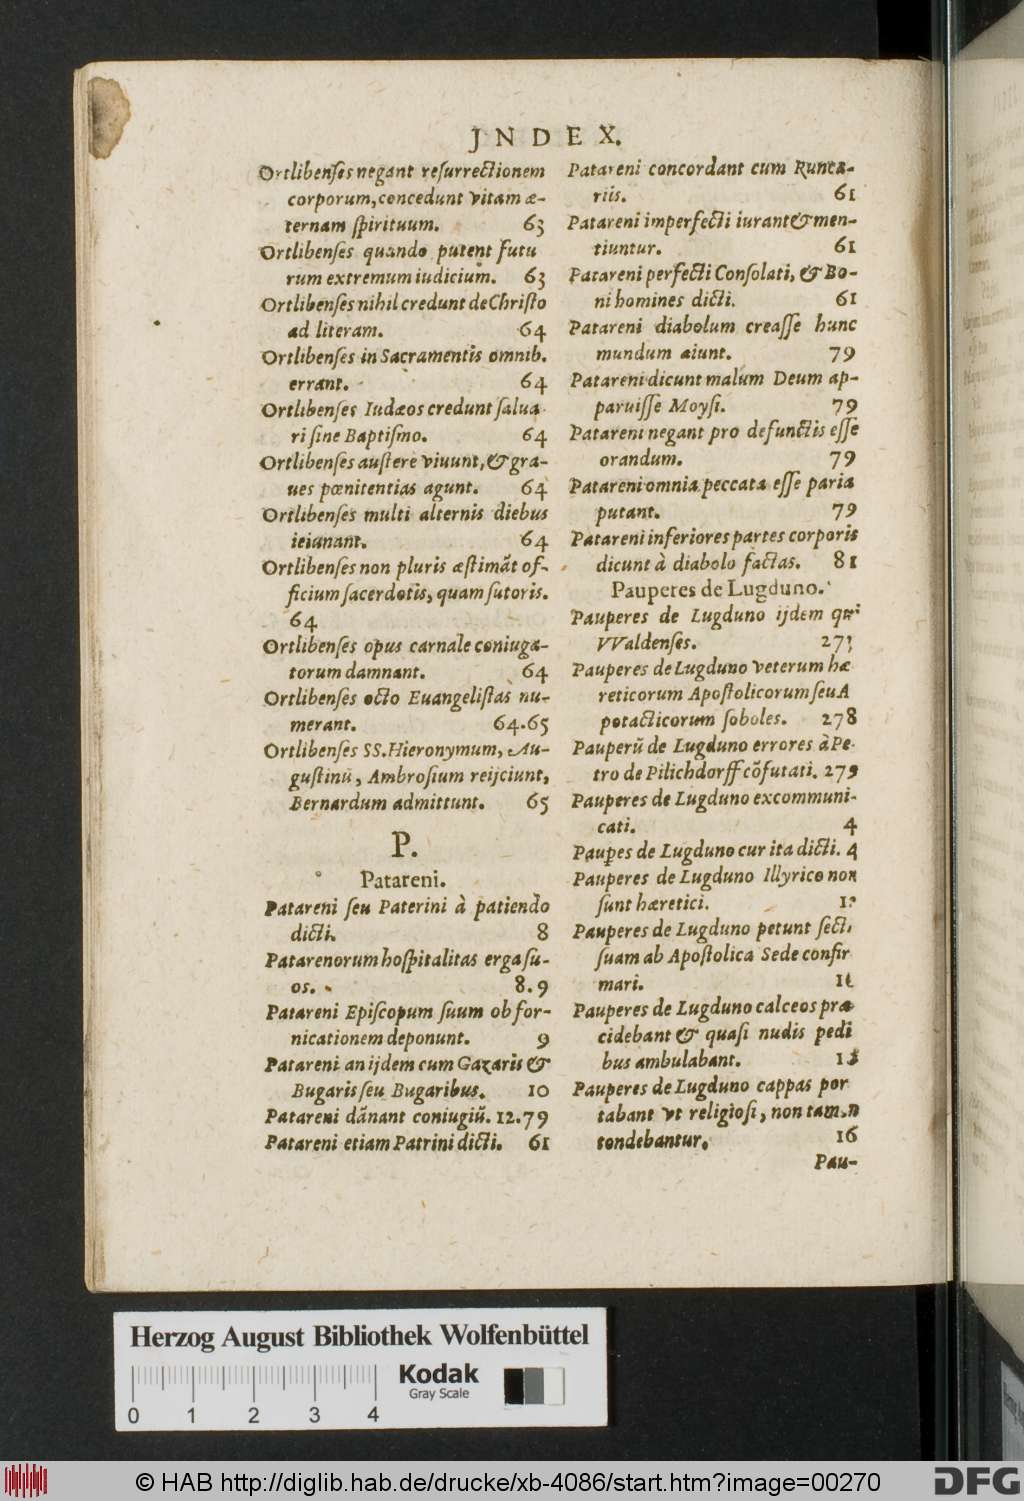 JNDEX.
Ortlibenses negant resurrectionem
corporum, concedunt vitam æ-
ternam spirituum. 63
Ortlibenses quando putent futu
rum extremum iudicium. 63
Ortlibenses nihil credunt de Christo
ad literam. 64
Ortlibenses in Sacramentis omnib.
errant. 64
Ortlibenses Iudæos credunt salua
ri sine Baptismo. 64
Ortlibenses austere viuunt, & gra-
ues pœnitentias agunt. 64
Ortlibenses multi alternis diebus
ieiunant. 64
Ortlibenses non pluris æstimãt of-
ficium sacerdotis, quam sutoris.
64
Ortlibenses opus carnale coniuga-
torum damnant. 64
Ortlibenses octo Euangelistas nu-
merant. 64.65
Ortlibenses SS. Hieronymum, Au-
gustinũ, Ambrosium reijciunt,
Bernardum admittunt. 65
P.
Patareni.
Patareni seu Paterini à patiendo
dicti. 8
Patarenorum hospitalitas erga su-
os. 8.9
Patareni Episcopum suum ob for-
nicationem deponunt. 9
Patareni an ijdem cum Gazaris &
Bugaris seu Bugaribus. 10
Patareni dãnant coniugiũ. 12.79
Patareni etiam Patrini dicti. 61
Patareni concordant cum Runca-
riis. 61
Patareni imperfecti iurant & men-
tiuntur. 61
Patareni perfecti Consolati, & Bo-
ni homines dicti. 61
Patareni diabolum creasse hunc
mundum aiunt. 79
Patareni dicunt malum Deum ap-
paruisse Moysi. 79
Patareni negant pro defunctis esse
orandum. 79
Patareni omnia peccata esse paria
putant. 79
Patareni inferiores partes corporis
dicunt à diabolo factas. 81
Pauperes de Lugduno.
Pauperes de Lugduno ijdem qui
VValdenses.
Pauperes de Lugduno veterum hæ
reticorum Apostolicorum seu A
potacticorum soboles. 278
Pauperũ de Lugduno errores à Pe-
tro de Pilichdorff cõfutati. 279
Pauperes de Lugduno excommuni-
cati. 4
Paupes de Lugduno cur ita dicti. 4
Pauperes de Lugduno Illyrico non
sunt hæretici.
Pauperes de Lugduno petunt
suam ab Apostolica Sede confir
mari.
Pauperes de Lugduno calceos præ
cidebant & quasi nudis pedi
bus ambulabant.
Pauperes de Lugduno cappas por
tabant vt religiosi, non
tondebantur. 16
Pau-
Herzog August Bibliothek Wolfenbüttel
Kodak
Gray Scale
0 1 2 3 4
© HAB http://diglib.hab.de/drucke/xb-4086/start.htm?image=00270
DFG